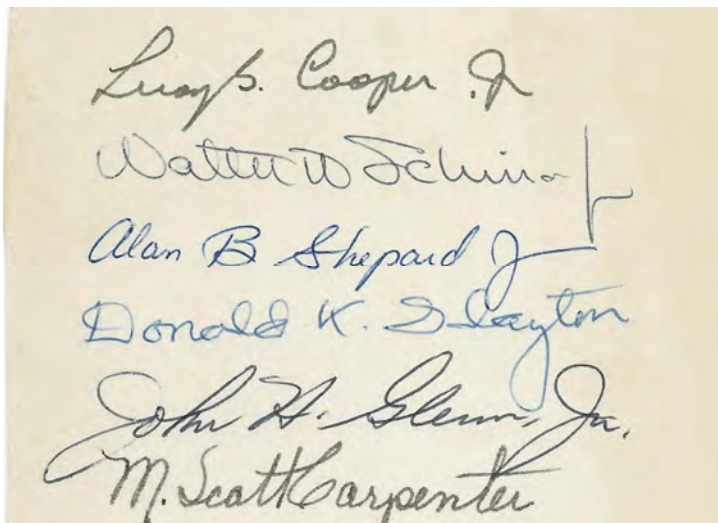 Leroy G. Cooper Jr
Walter M Schirra Jr
Alan B. Shepard Jr
Donald K. Slayton
John H. Glenn, Jr.
M. Scott Carpenter